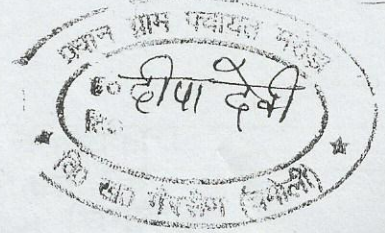 प्रधान ग्राम पंचायत
ह० दीपा देवी
वि० ख० गैरसैंण (चमोली)